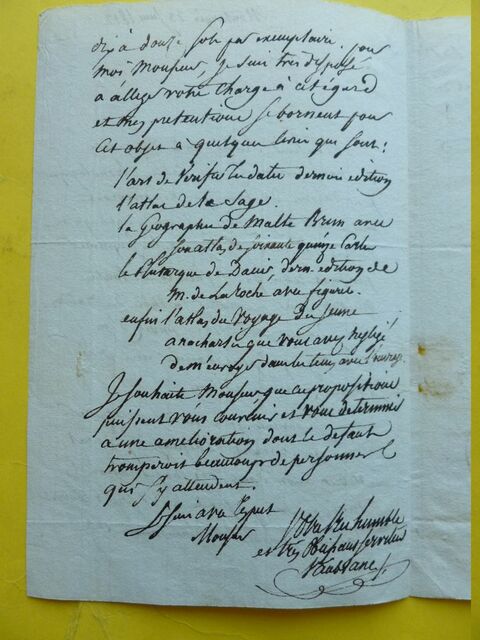 dix à douze sols par exemplaire. pour
moi Monsieur, je suis très disposé
a alléger votre charge à cet égard
et mes pretentions se bornent pour
cet objet à quelques livres qui sont:
l'art de verifier les dates derniere edition
l'atlas de le Sage.
la Géographie de Malte Brun avec
son atlas de soixante quinze Cartes
le Plutarque de Dacier, dern. edition de
M. de La Roche avec figures.
enfin l'atlas du Voyage du jeune
anacharsis que vous avez négligé
de m'envoyer dans le tems avec l'ouvrage
Je souhaite Monsieur que ces propositions
puissent vous convenir et vous determiner
à une amelioration dont le defaut
tromperoit beaucoup de personnes
qui s'y attendent.
Je suis avec respect
Monsieur
Votre très humble
et très obéissant serviteur